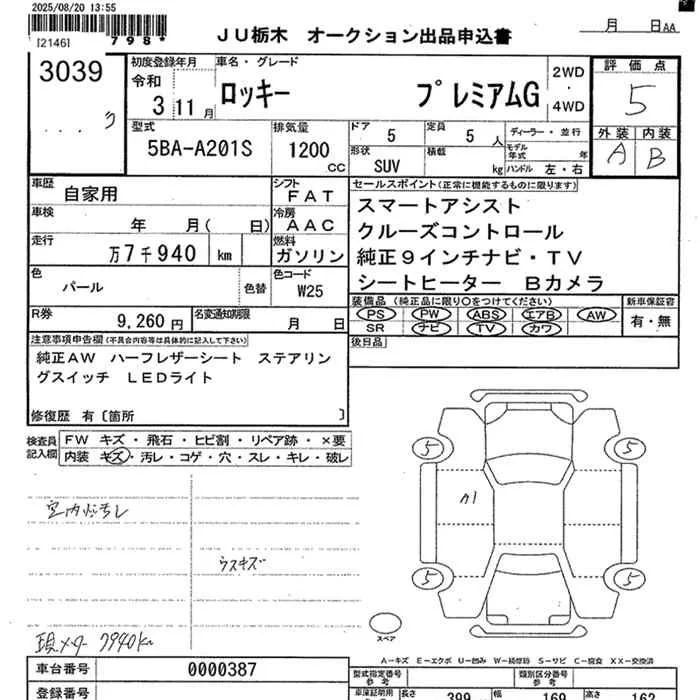 2025/08/20 13:55
[2146]
798*
JU栃木 オークション出品申込書
月 日AA
3039
初度登録年月
令和
3 11月
車名・グレード
ロッキー プレミアムG
2WD
・
4WD
評価点
5
外装 内装
A B
型式
5BA-A201S
排気量
1200
CC
ドア
5
定員
5
人
ディーラー・並行
形状
SUV
積載
kg
モデル
年式 年
ハンドル 左・右
車歴
自家用
シフト
FAT
セールスポイント(正常に機能するものに限ります)
スマートアシスト
クルーズコントロール
純正9インチナビ・TV
シートヒーター Bカメラ
車検
年 月( 日)
冷房
AAC
走行
万7千940 km
燃料
ガソリン
色
パール
色替
色コード
W25
装備品(純正品に限り○をつけてください)
PS PW ABS エアB AW
SR ナビ TV カワ
新車保証書
有・無
R券
9,260円
名変通知期限
月 日
後日品
注意事項申告欄(不具合内容等は具体的に記入して下さい)
純正AW ハーフレザーシート ステアリン
グスイッチ LEDライト
修復歴 有〔箇所 〕
検査員
記入欄
FW キズ・飛石・ヒビ割・リペア跡・×要
内装 キズ・汚レ・コゲ・穴・スレ・キレ・破レ
室内汚レ
ウスキズ
現メーター 7940km
5 5
カ1
5 5
スペア
A-キズ E-エクボ U-凹み W-補修跡 S-サビ C-腐食 XX-交換済
車台番号
0000387
登録番号
型式指定番号
参考
類別区分番号
参考
車庫証明用
長さ
399
幅
169
高さ
162